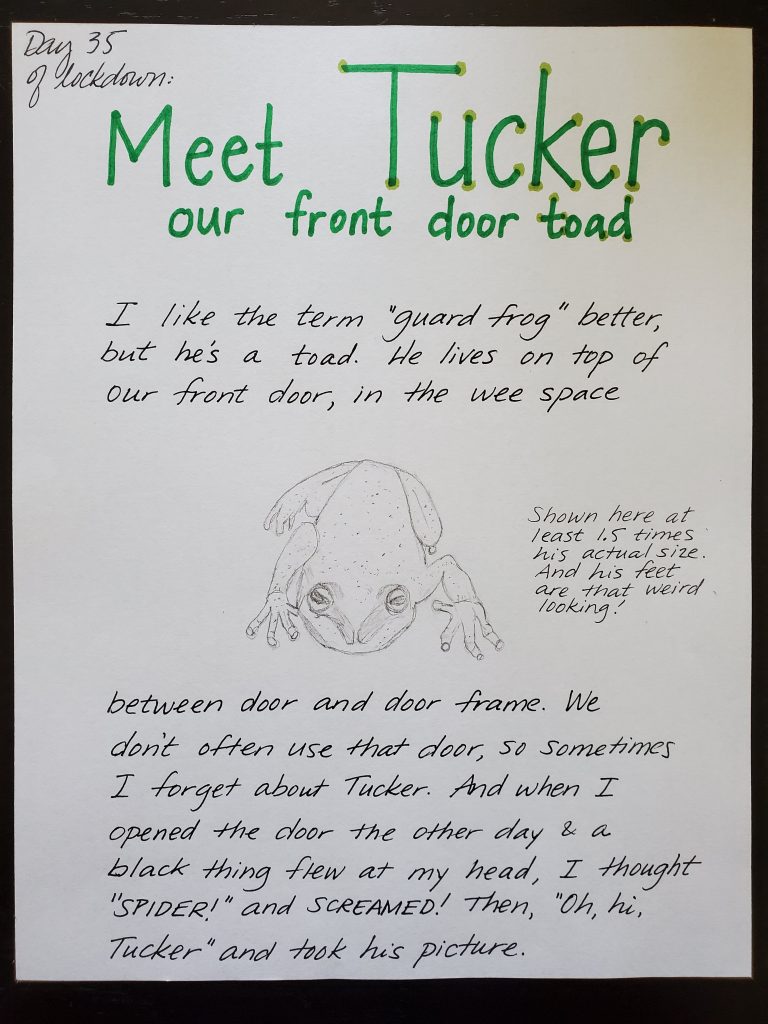 Day 35
of lockdown:
Meet Tucker
our front door toad
I like the term "guard frog" better,
but he's a toad. He lives on top of
our front door, in the wee space
Shown here at
least 1.5 times
his actual size.
And his feet
are that weird
looking!
between door and door frame. We
don't often use that door, so sometimes
I forget about Tucker. And when I
opened the door the other day & a
black thing flew at my head, I thought
"SPIDER!" and SCREAMED! Then, "Oh, hi,
Tucker" and took his picture.